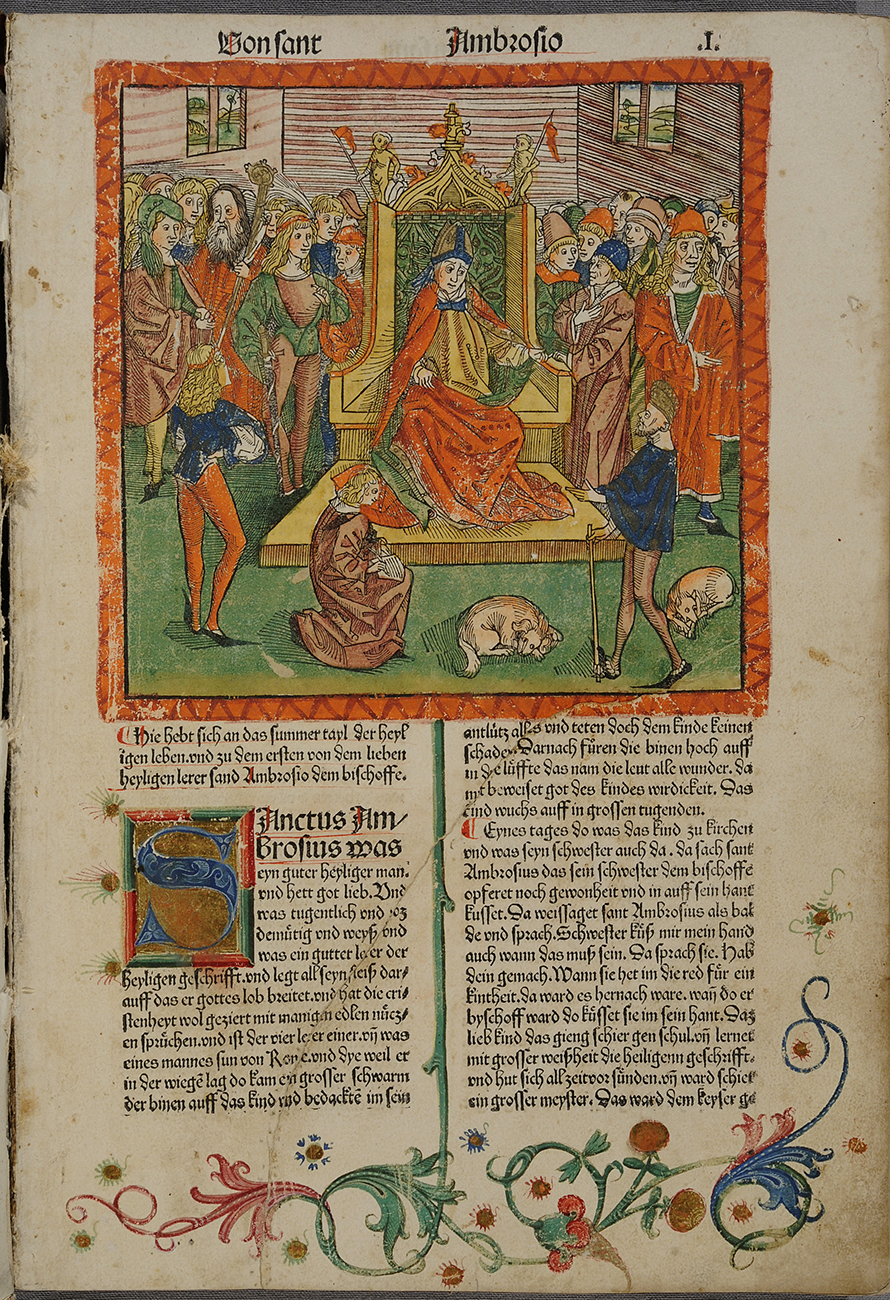 Von sant Ambrosio .I.
Hie hebt sich an das summer tayl der heyl
igen leben. vnd zu dem ersten von dem lieben
heyligen lerer sand Ambrosio dem bischoffe.
SAnctus Am⸗
brosius was
eyn guter heyliger man.
vnd hett got lieb. Vnd
was tugentlich vnd
demütig vnd weyß vnd
was ein gutter lerer der
heyligen geschrifft. vnd legt all seyn fleiß dar⸗
auff das er gottes lob breitet. vnd hat die cri⸗
stenheyt wol geziert mit manigen edlen nücz⸗
en sprüchen. vnd ist der vier lerer einer. vñ was
eines mannes sun von Rome. vnd dye weil er
in der wiegē lag do kam eyn grosser schwarm
der binen auff das kind vnd bedacktē im sein
antlütz alles vnd teten doch dem kinde keinen
schadē. Darnach fůren die binen hoch auff
in die lüffte das nam die leut alle wunder. da
mit beweiset got des kindes wirdickeit. Das
kind wuchs auff in grossen tugenden.
Eynes tages do was das kind zu kirchen
vnd was seyn schwester auch da. da sach sant
Ambrosius das sein schwester dem bischoffe
opferet noch gewonheit vnd in auff sein hant
kusset. Da weissaget sant Ambrosius als bal
de vnd sprach. Schwester küß mir mein hand
auch wann das muß sein. Da sprach sie. Hab
dein gemach. Wann sie het im die red für ein
kintheit. da ward es hernach ware. wañ do er
byschoff ward do küsset sie im sein hant. Daz
lieb kind das gieng schier gen schul. vñ lernet
mit grosser weißheit die heiligenn geschrifft.
vnd hut sich allzeit vor sünden. vñ ward schier
ein grosser meyster. Das ward dem keyser ge